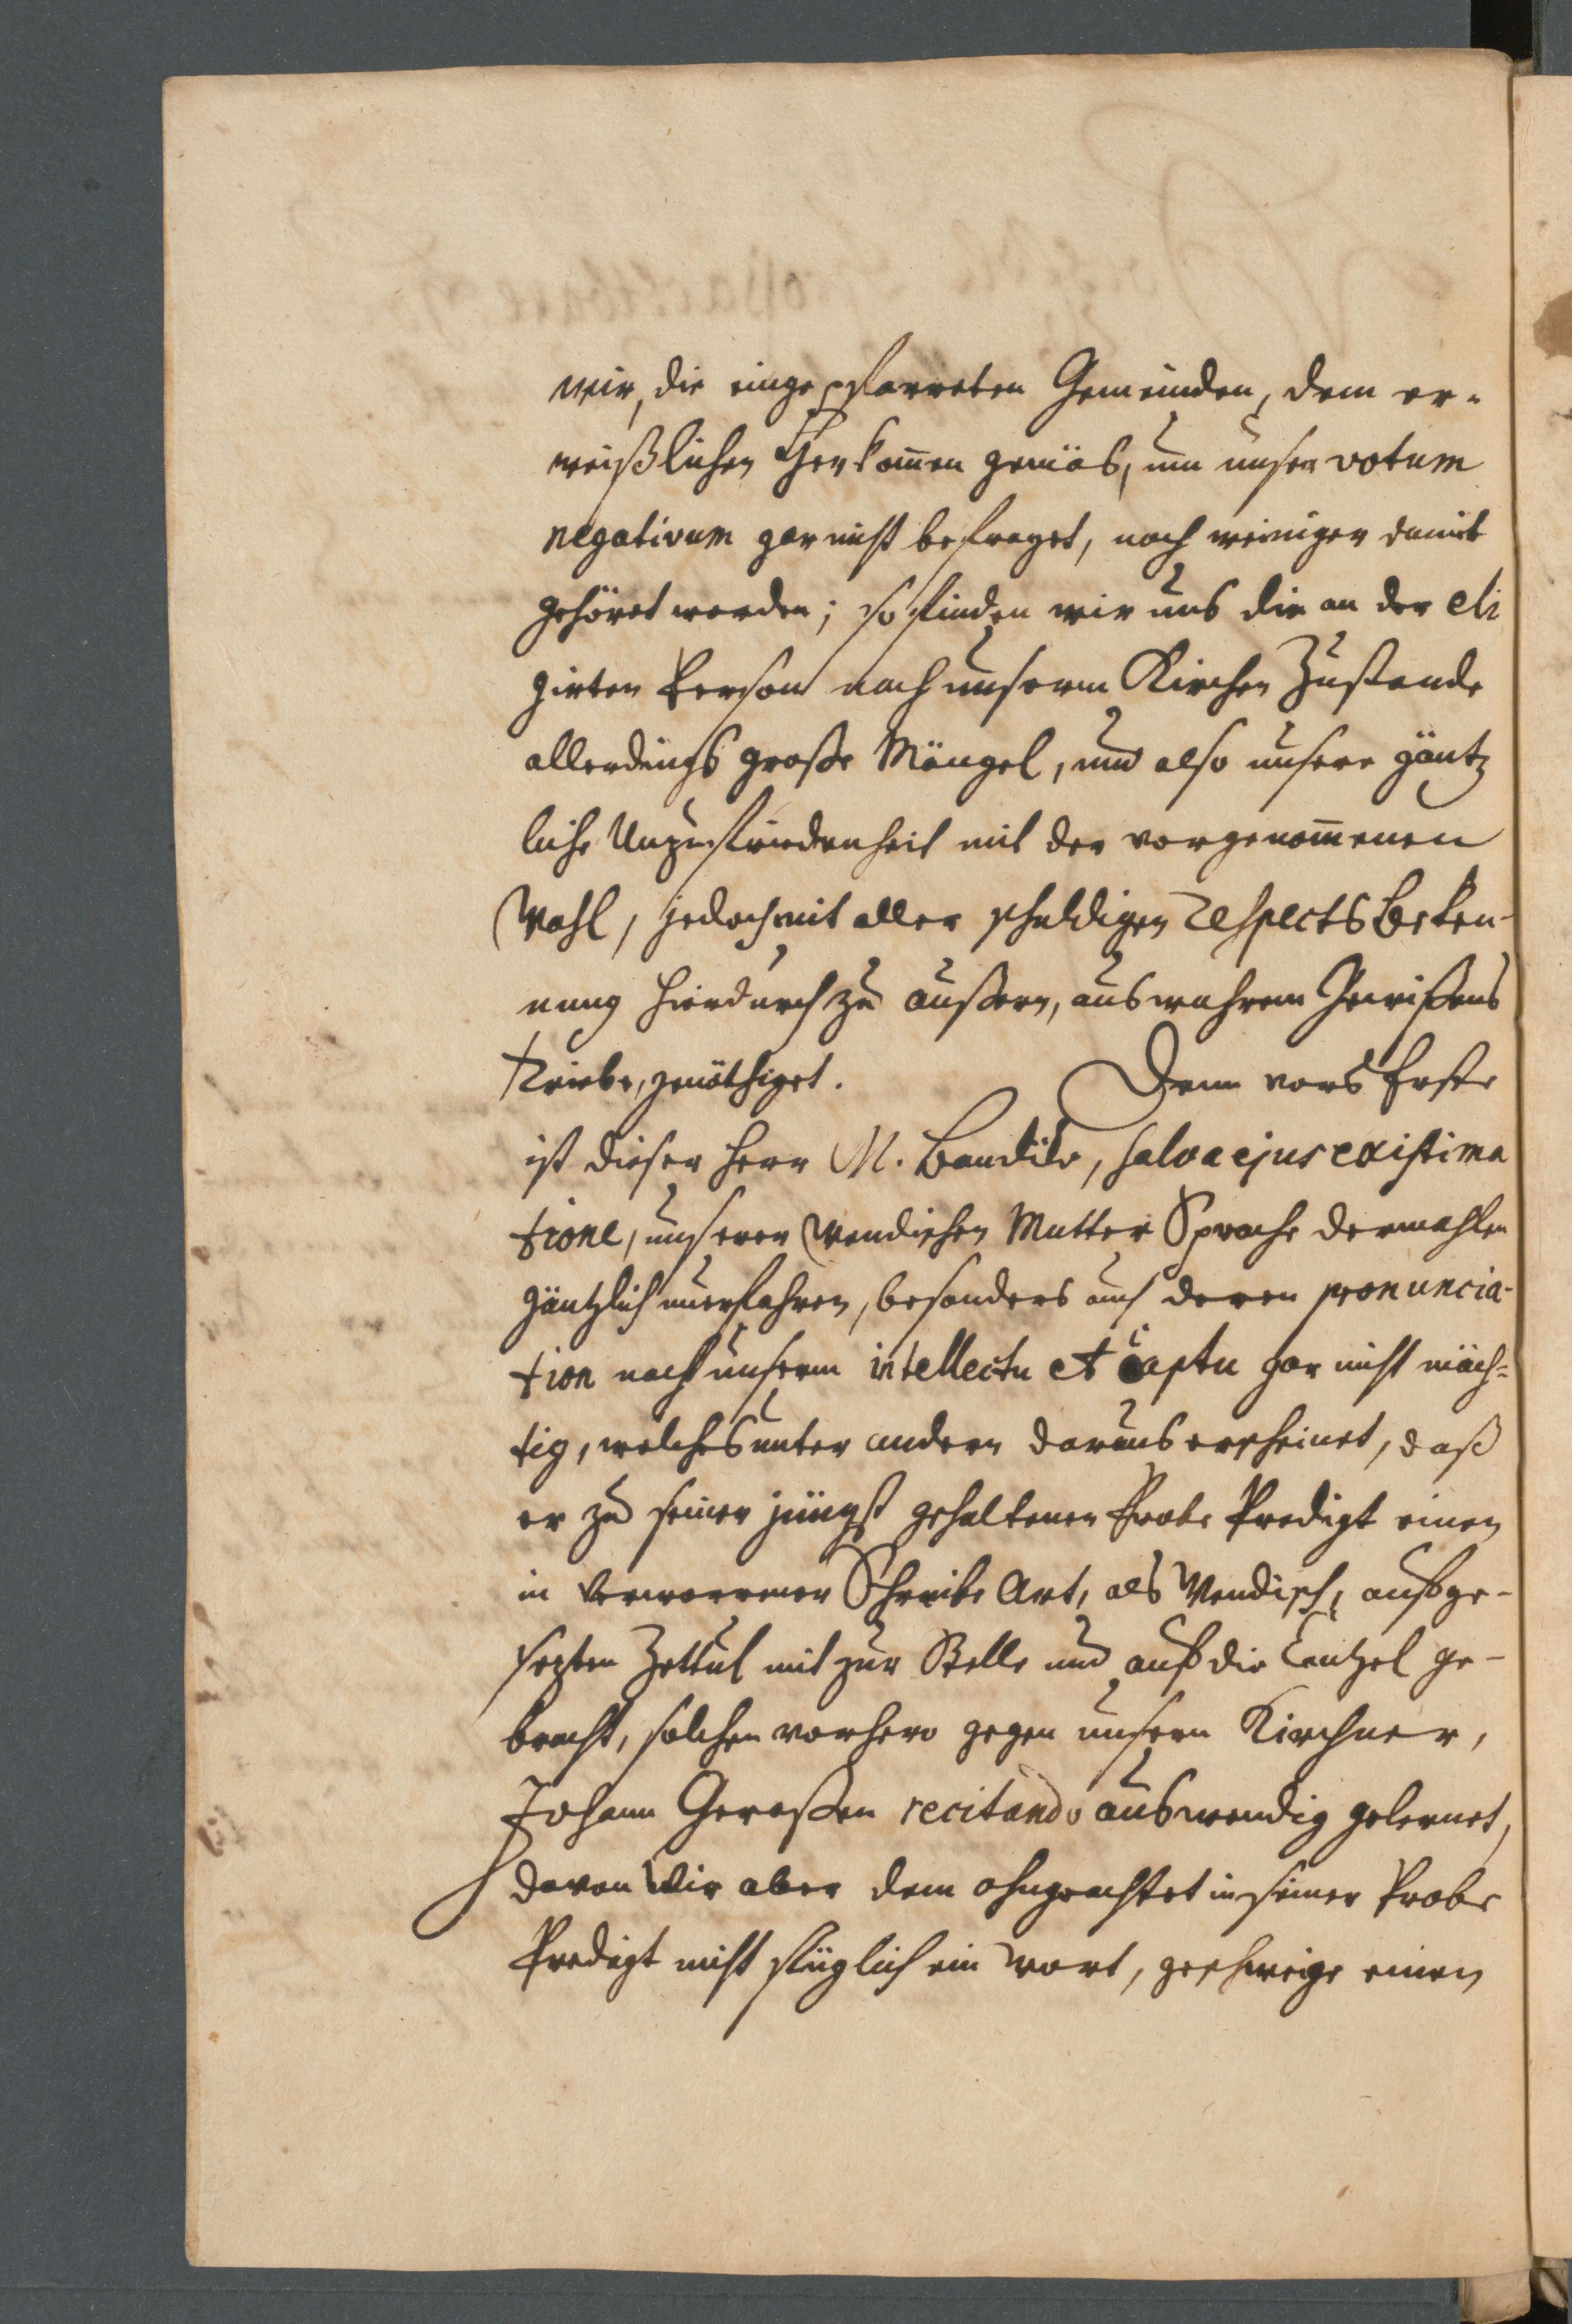 wir, die eingepfarreten Gemeinden, dem er-
weißlichen Herkom̄en gemäs, um unser votum
negativum gar nicht befraget, noch weiniger damit
gehöret worden; so finden wir uns die an der eli
girten Person nach unserm Kirchen Zustande
allerdings große Mängel, und also unsere gäntz
liche Unzufriedenheit mit der vorgenom̄enen
Wahl, jedoch mit aller schuldigen Respects Beken-
nung hierdurch zu äußern, aus wahrem Gewißens
Triebe, genöthiget. Denn vors Erste
ist dieser Herr M. Baudilo, salva ejus existima
tione, unserer Wendischen Mutter Sprache dermahlen
gäntzlich unerfahren, besonders auch deren pronuncia-
tion nach unserm intellectu et captu gar nicht mäch-
tig, welches unter andern daraus erscheinet, daß
er zu seiner jüngst gehaltenen Probe Predigt einen
in verworrener Schreibe Art, als Wendisch, aufge-
sezten Zettul mit zur Stelle und auf die Cantzel ge-
bracht, solchen vorhero gegen unsern Kirchner,
Johann Geroßen recitando auswendig gelernet,
davon Wir aber dem ohngeachtet in seiner Probe
Predigt nicht füglich ein Wort, geschweige einen